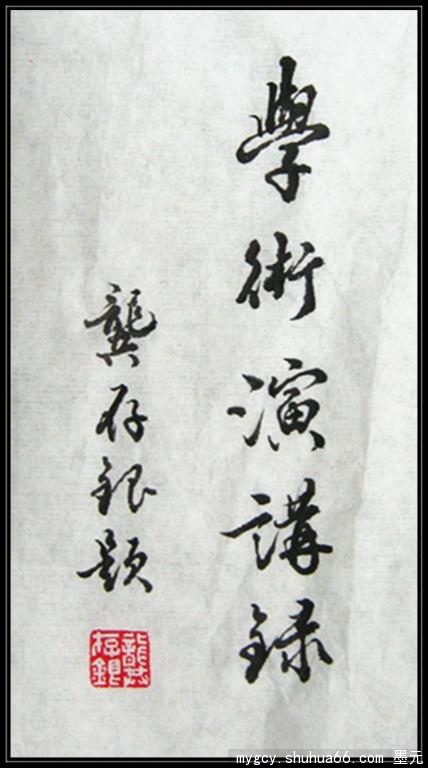 學術演講録
龔存銀題
龔存銀
mygcy.shuhua66.com 墨元